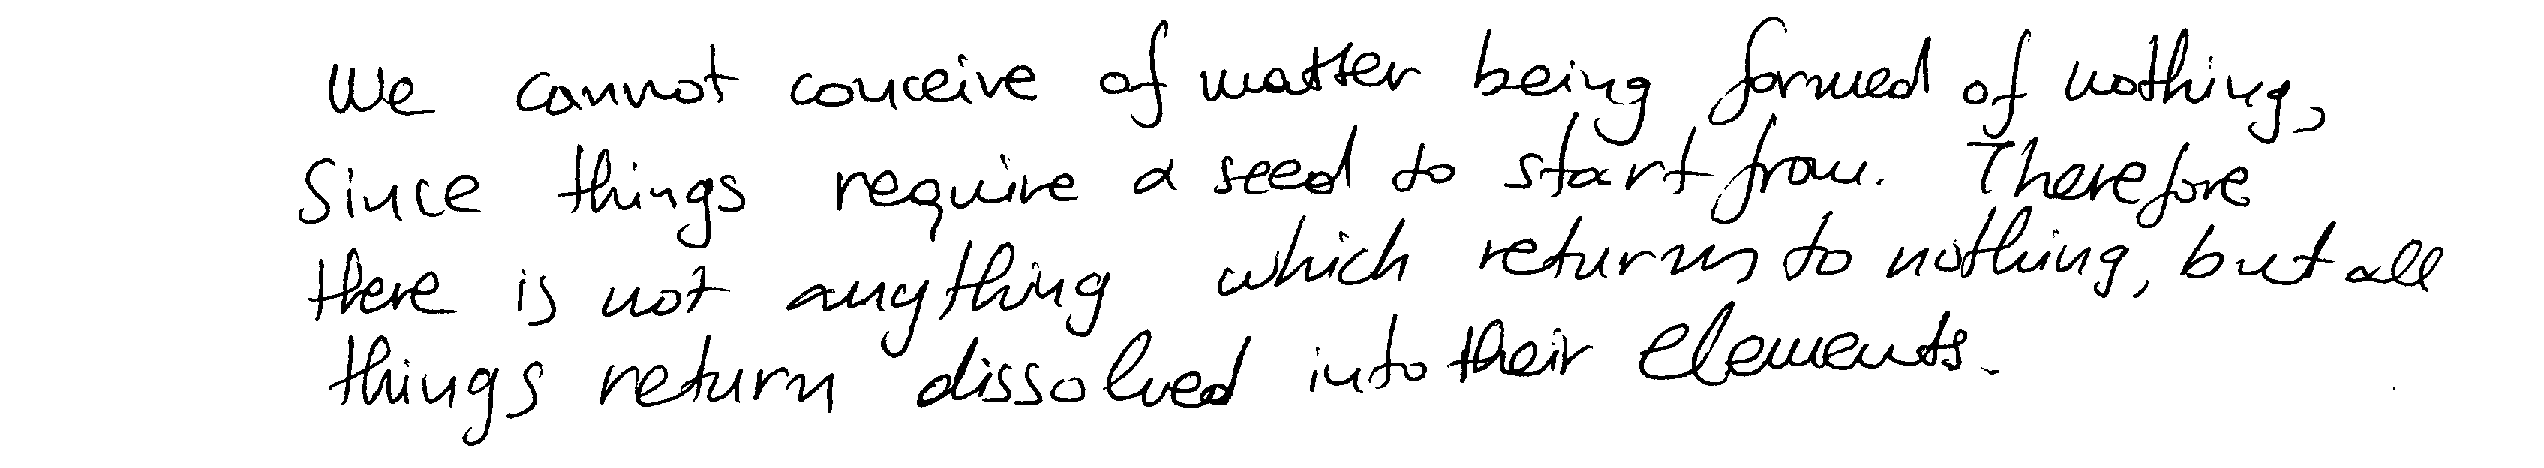 We cannot conceive of matter being formed of nothing,
Since things require a seed to start from. Therefore
there is not anything which returns to nothing, but all
things return dissolved into their elements.